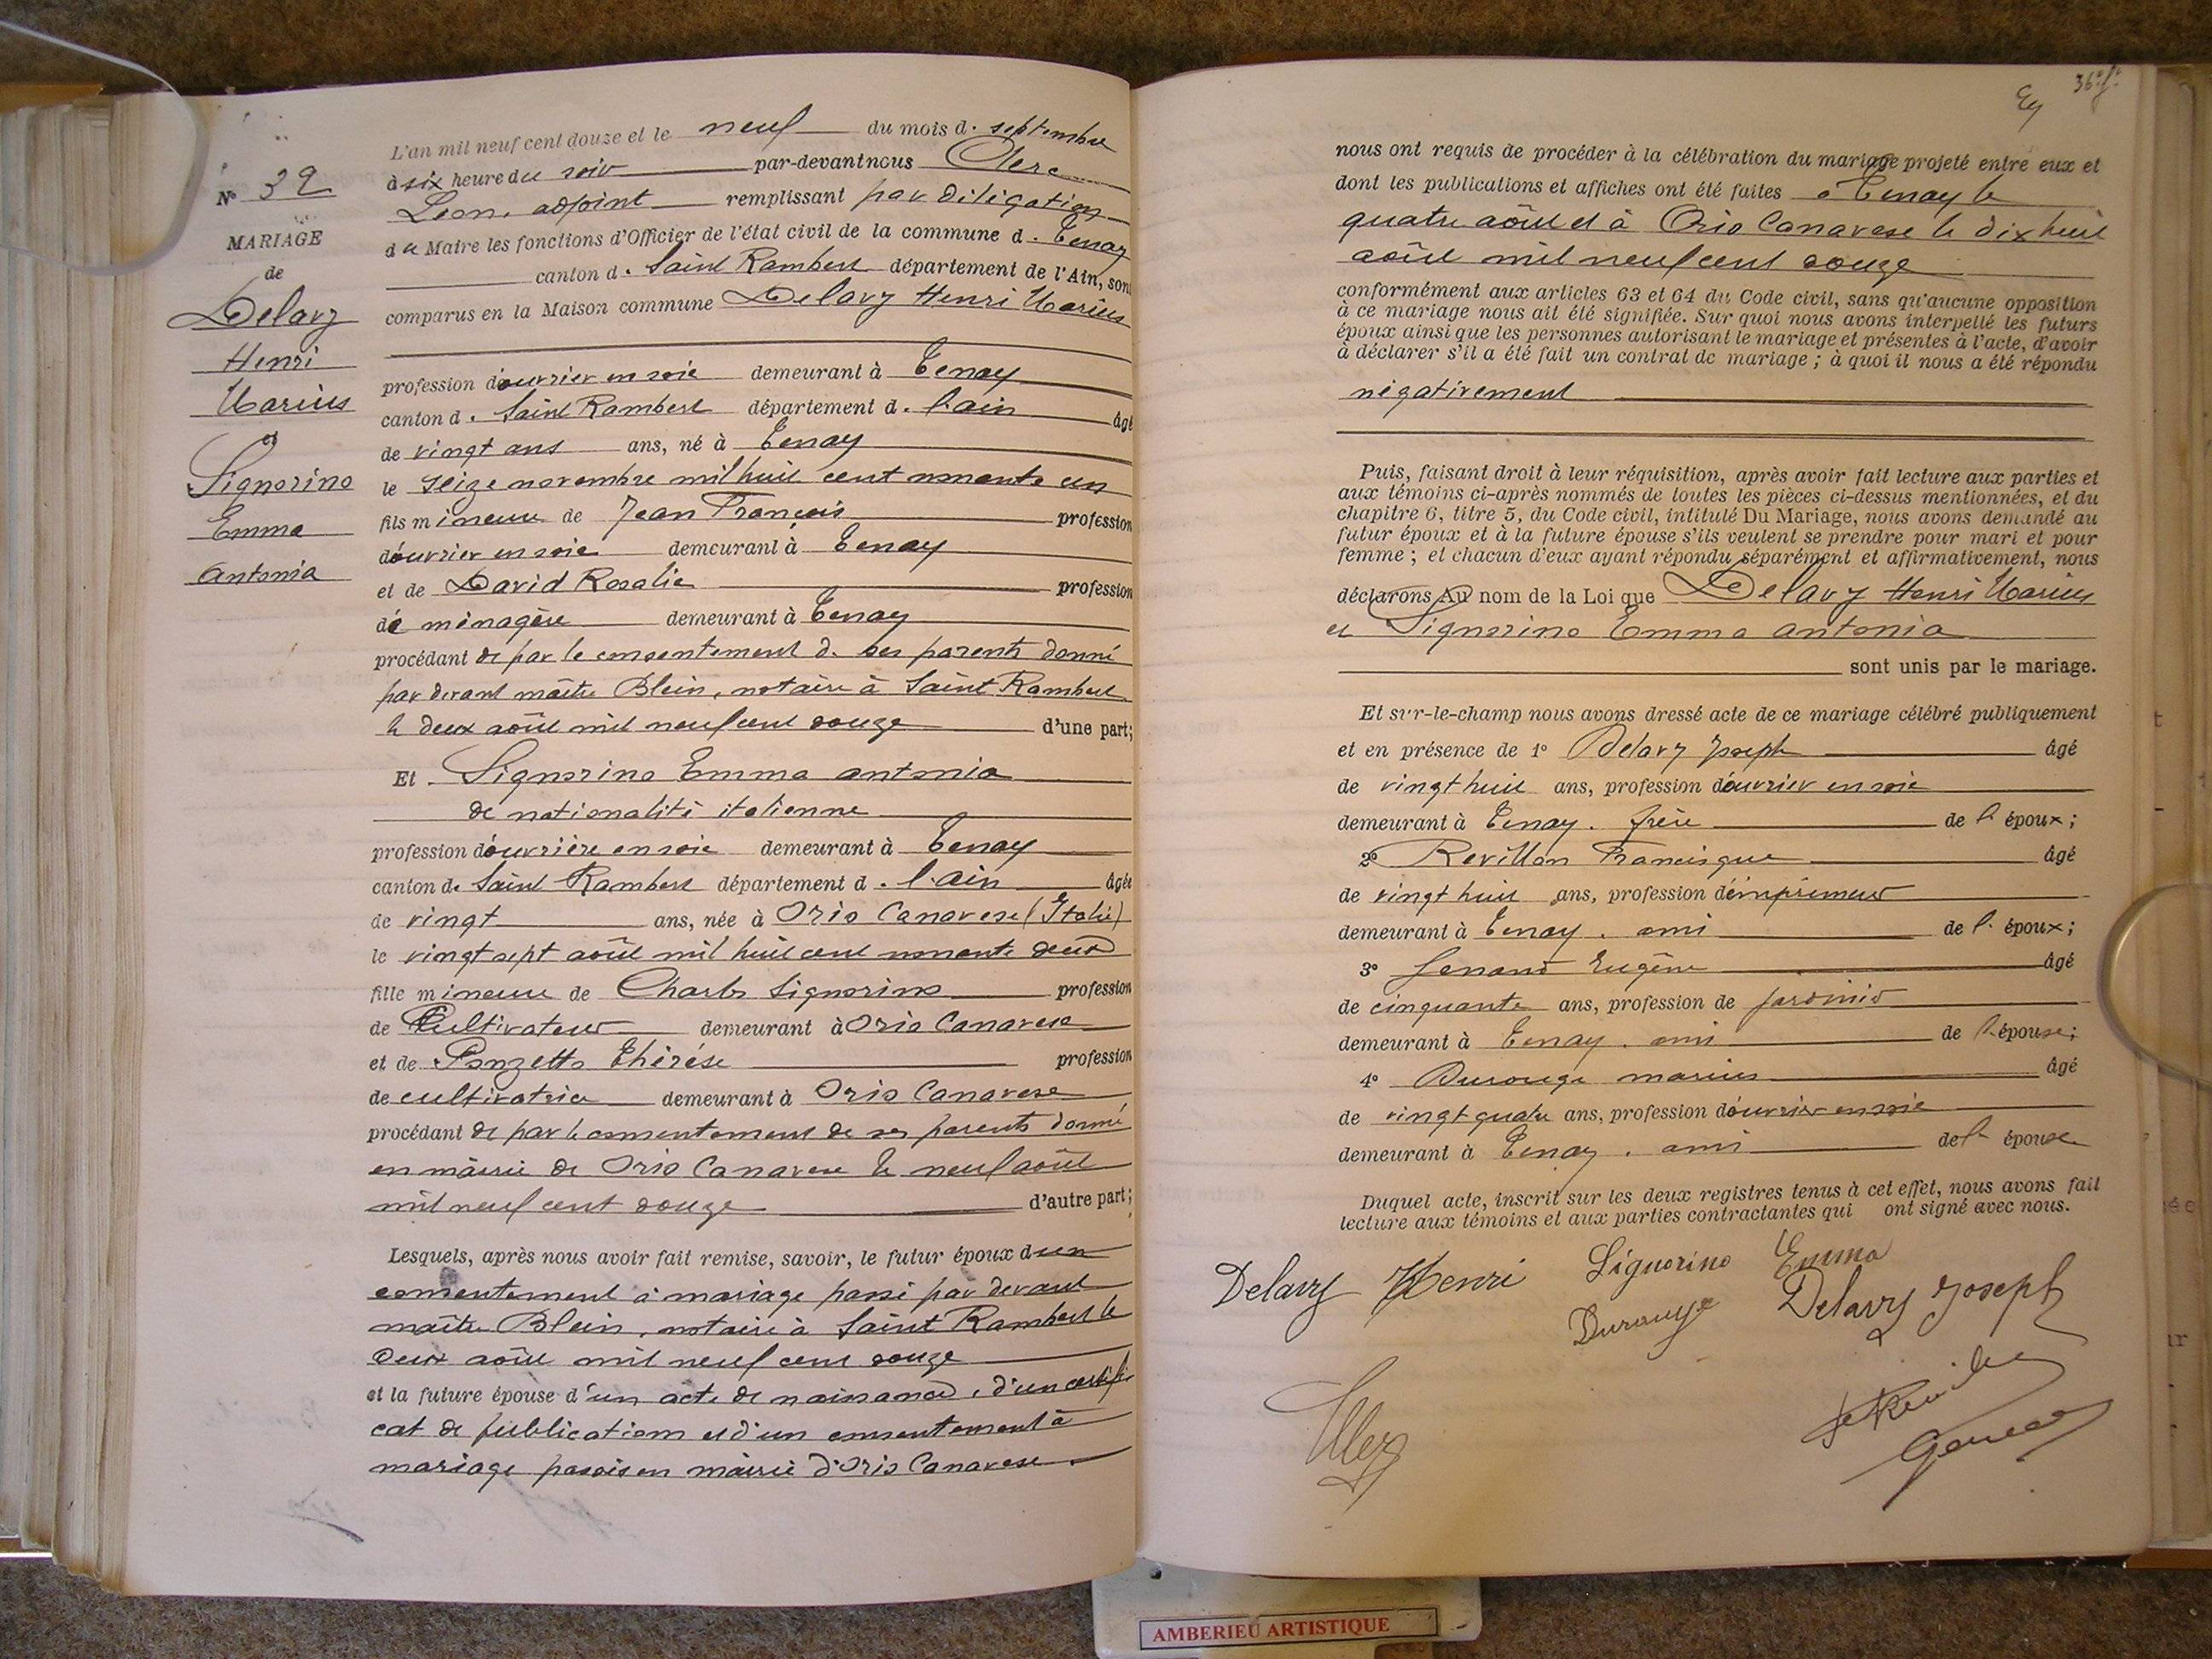 L'an mil neuf cent douze et le neuf du mois d. septembre
à six heure du soir par-devant nous Clerc
Léon, adjoint remplissant par délégation
du Maire les fonctions d'Officier de l'état civil de la commune d. Tenay
canton d. Saint Rambert département de l'Ain, sont
comparus en la Maison commune Delavy Henri Marius
profession d'ouvrier en soie demeurant à Tenay
canton d. Saint Rambert département d. l'ain âgé
de vingt ans ans, né à Tenay
le seize novembre mil huit cent nonante un
fils mineur de Jean François profession
d'ouvrier en soie demeurant à Tenay
et de David Rosalie profession
de ménagère demeurant à Tenay
procédant de par le consentement d. ses parents donné
par devant maître Blein, notaire à Saint Rambert
le deux août mil neuf cent douze d'une part;
Et Signorino Emma antonia
de nationalité italienne
profession d'ouvrière en soie demeurant à Tenay
canton d. Saint Rambert département d. l'ain âgée
de vingt ans, née à Orio Canavese (Italie)
le vingt sept août mil huit cent nonante deux
fille mineure de Charles Signorino profession
de Cultivateur demeurant à Orio Canavese
et de Ponzetto Thérése profession
de cultivatrice demeurant à Orio Canavese
procédant de par le consentement de ses parents donné
en mairie de Orio Canavese le neuf août
mil neuf cent douze d'autre part;
Lesquels, après nous avoir fait remise, savoir, le futur époux d'un
consentement à mariage passé par devant
maître Blein, notaire à Saint Rambert le
deux août mil neuf cent douze
et la future épouse d'un acte de naissance, d'un certifi
cat de publications et d'un consentement à
mariage passés en mairie d'Orio Canavese
N° 32
MARIAGE
de
Delavy
Henri
Marius
et
Signorino
Emma
Antonia
36 f.
nous ont requis de procéder à la célébration du mariage projeté entre eux et
dont les publications et affiches ont été faites à Tenay le
quatre août et à Orio Canavese le dix huit
août mil neuf cent douze
conformément aux articles 63 et 64 du Code civil, sans qu'aucune opposition
à ce mariage nous ait été signifiée. Sur quoi nous avons interpellé les futurs
époux ainsi que les personnes autorisant le mariage et présentes à l'acte, d'avoir
à déclarer s'il a été fait un contrat de mariage ; à quoi il nous a été répondu
négativement
Puis, faisant droit à leur réquisition, après avoir fait lecture aux parties et
aux témoins ci-après nommés de toutes les pièces ci-dessus mentionnées, et du
chapitre 6, titre 5, du Code civil, intitulé Du Mariage, nous avons demandé au
futur époux et à la future épouse s'ils veulent se prendre pour mari et pour
femme ; et chacun d'eux ayant répondu séparément et affirmativement, nous
déclarons Au nom de la Loi que Delavy Henri Marius
et Signorino Emma antonia
sont unis par le mariage.
Et sur-le-champ nous avons dressé acte de ce mariage célébré publiquement
et en présence de 1° Delavy Joseph âgé
de vingt huit ans, profession d'ouvrier en soie
demeurant à Tenay. frère de l'époux;
2° Revillon Francisque âgé
de vingt huit ans, profession d'imprimeur
demeurant à Tenay. ami de l'époux;
3° Eugène âgé
de cinquante ans, profession de jardinier
demeurant à Tenay. ami de l'épouse;
4° Durouge marius âgé
de vingt quatre ans, profession d'ouvrier en soie
demeurant à Tenay. ami de l'épouse
Duquel acte, inscrit sur les deux registres tenus à cet effet, nous avons fait
lecture aux témoins et aux parties contractantes qui ont signé avec nous.
Delavy Henri Signorino Emma
Durouge Delavy Joseph
AMBERIEU ARTISTIQUE